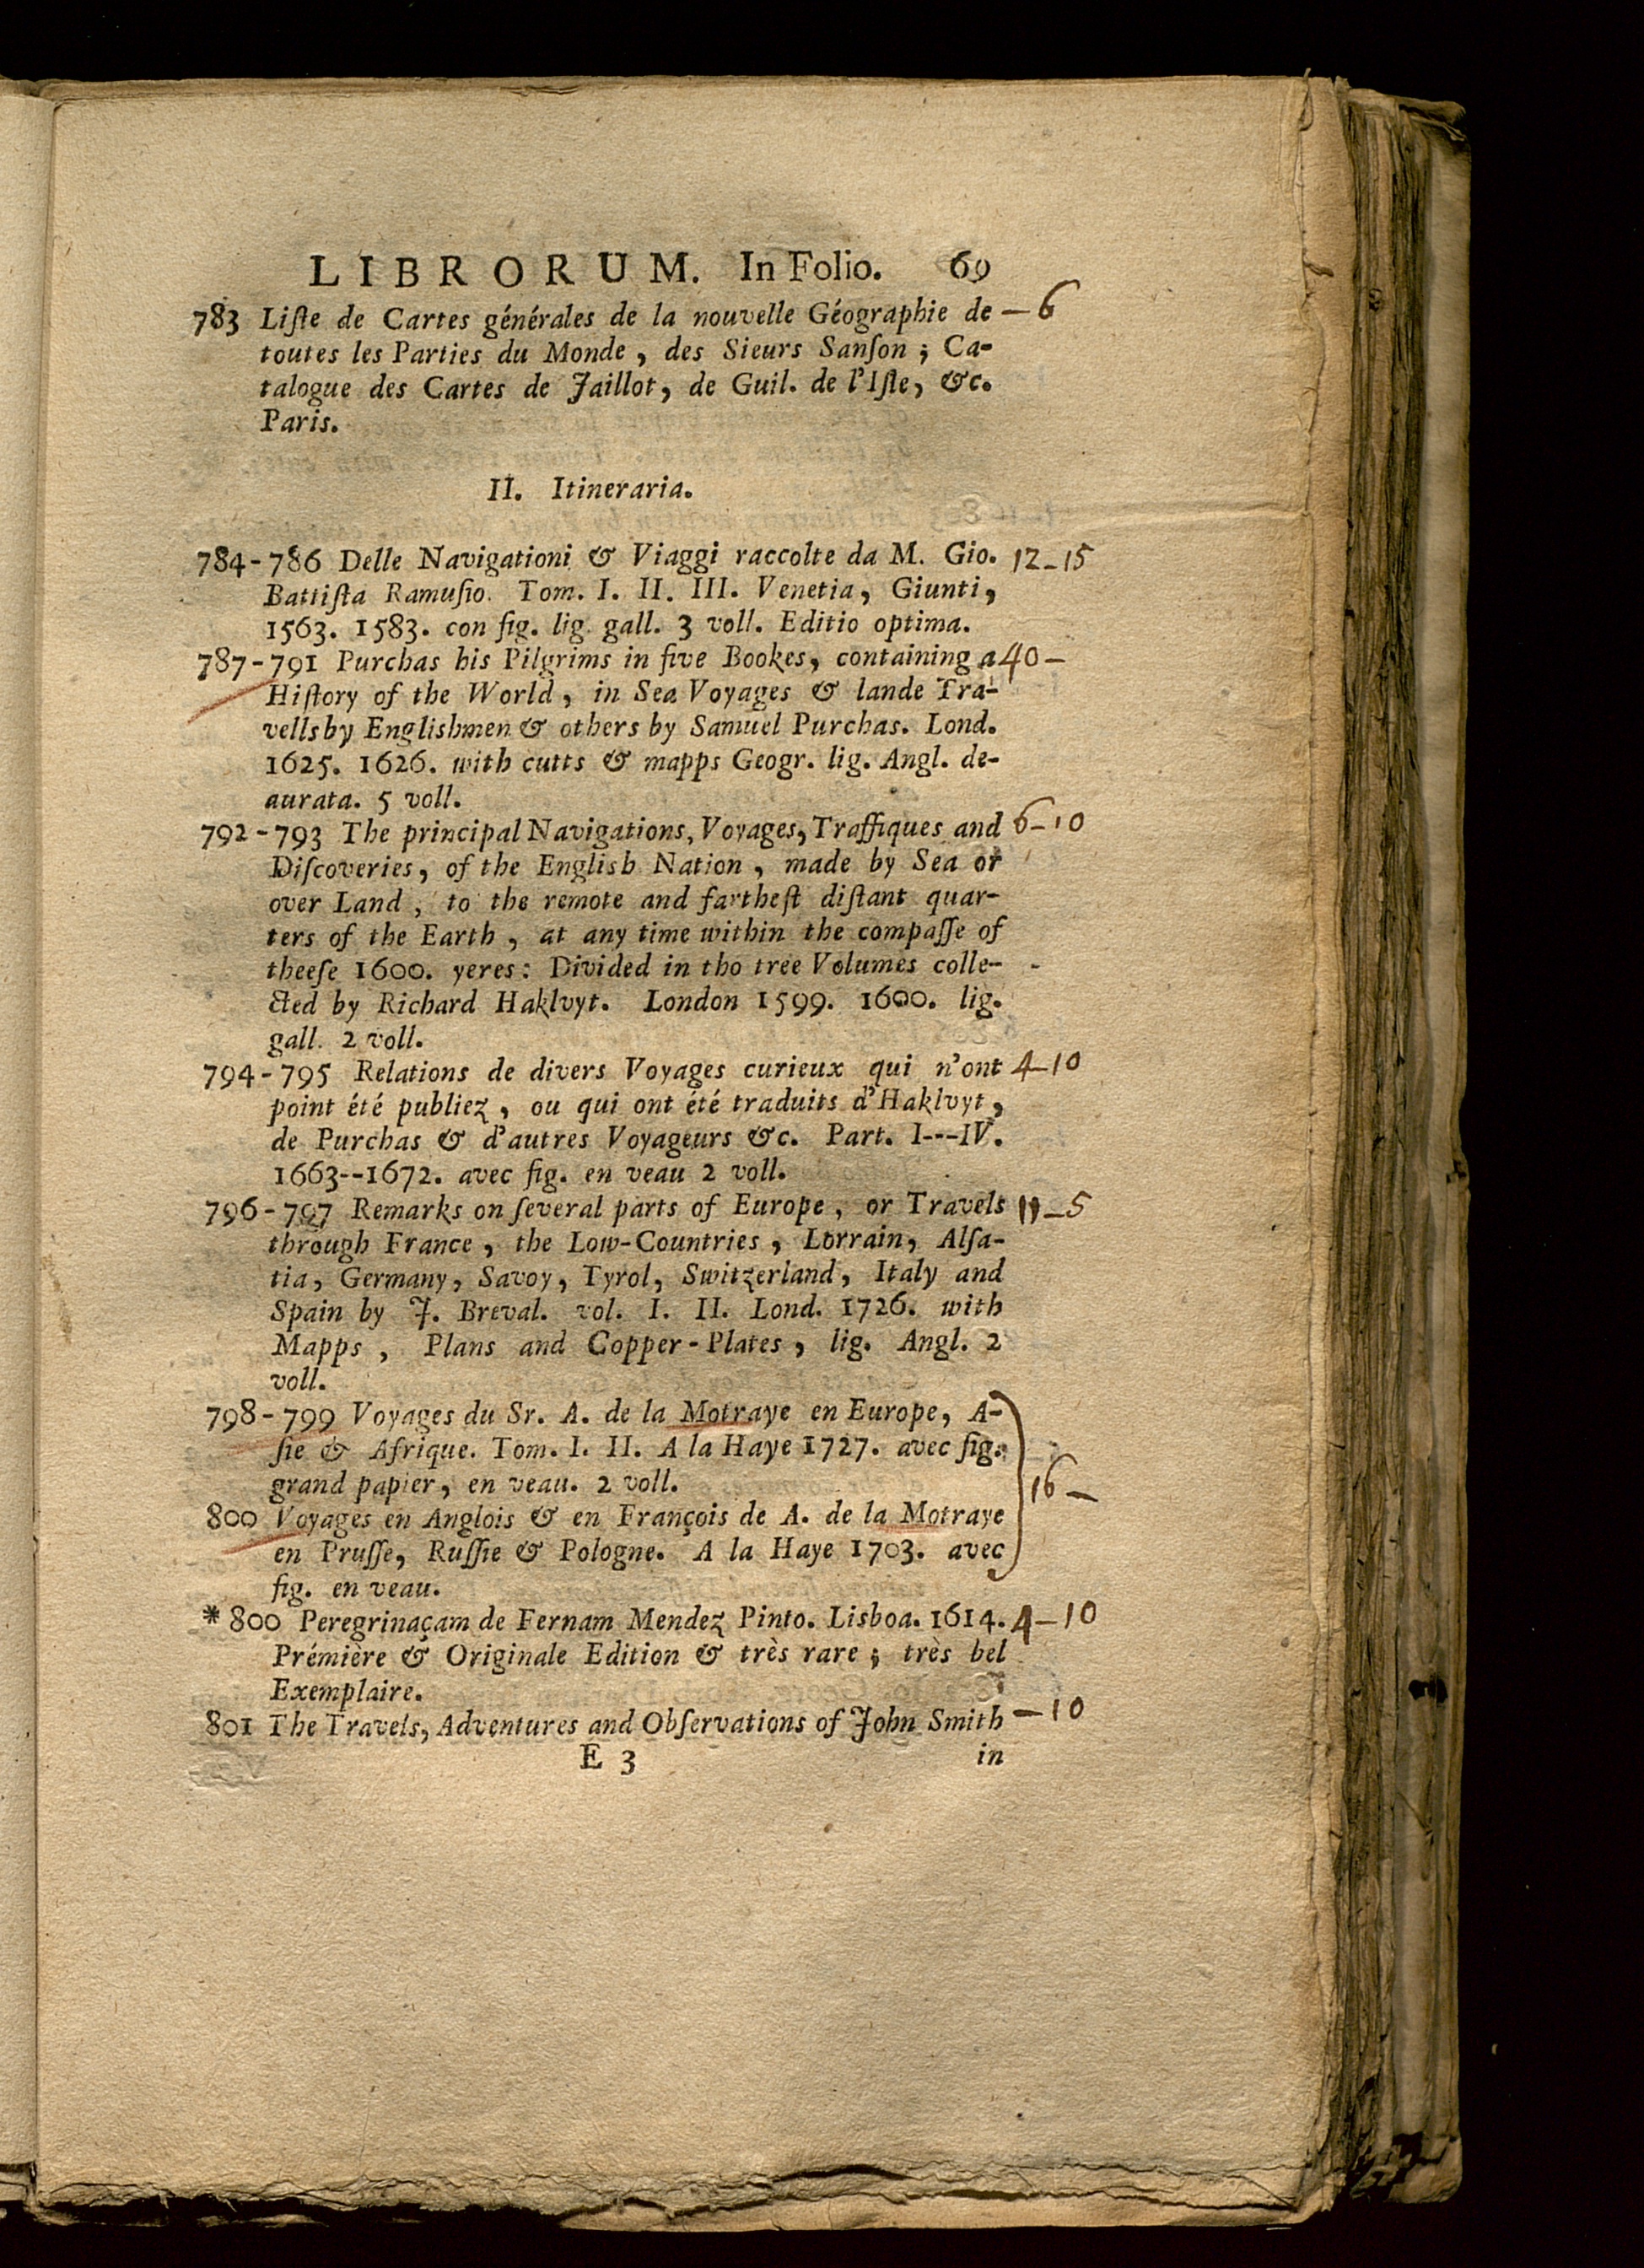 LIBRORUM. In Folio. 69
783 Liſte de Cartes générales de la nouvelle Géographie de — 6
toutes les Parties du Monde, des Sieurs Sanſon; Ca-
talogue des Cartes de Jaillot, de Guil. de l'Iſle, &c.
Paris.
II. Itineraria.
784-786 Delle Navigationi & Viaggi raccolte da M. Gio. 12-15
Battiſta Ramuſio. Tom. I. II. III. Venetia, Giunti,
1563. 1583. con fig. lig. gall. 3 voll. Editio optima.
787-791 Purchas his Pilgrims in five Bookes, containing a 40 —
Hiſtory of the World, in Sea Voyages & lande Tra-
vells by Englishmen & others by Samuel Purchas. Lond.
1625. 1626. with cutts & mapps Geogr. lig. Angl. de-
aurata. 5 voll.
792-793 The principal Navigations, Voyages, Traffiques and 6-10
Diſcoveries, of the English Nation, made by Sea or
over Land, to the remote and fartheſt diſtant quar-
ters of the Earth, at any time within the compaſſe of
theeſe 1600. yeres: Divided in tho tree Volumes colle-
cted by Richard Haklvyt. London 1599. 1600. lig.
gall. 2 voll.
794-795 Relations de divers Voyages curieux qui n'ont 4-10
point été publiez, ou qui ont été traduits d'Haklvyt,
de Purchas & d'autres Voyageurs &c. Part. I---IV.
1663--1672. avec fig. en veau 2 voll.
796-797 Remarks on ſeveral parts of Europe, or Travels 11-5
through France, the Low-Countries, Lorrain, Alſa-
tia, Germany, Savoy, Tyrol, Switzerland, Italy and
Spain by J. Breval. vol. I. II. Lond. 1726. with
Mapps, Plans and Copper-Plates, lig. Angl. 2
voll.
798-799 Voyages du Sr. A. de la Motraye en Europe, A-
ſie & Afrique. Tom. I. II. A la Haye 1727. avec fig.
grand papier, en veau. 2 voll. 16 —
800 Voyages en Anglois & en François de A. de la Motraye
en Pruſſe, Ruſſie & Pologne. A la Haye 1703. avec
fig. en veau.
*800 Peregrinaçam de Fernam Mendez Pinto. Lisboa. 1614. 4-10
Prémière & Originale Edition & très rare; très bel
Exemplaire.
801 The Travels, Adventures and Obſervations of John Smith — 10
E 3 in